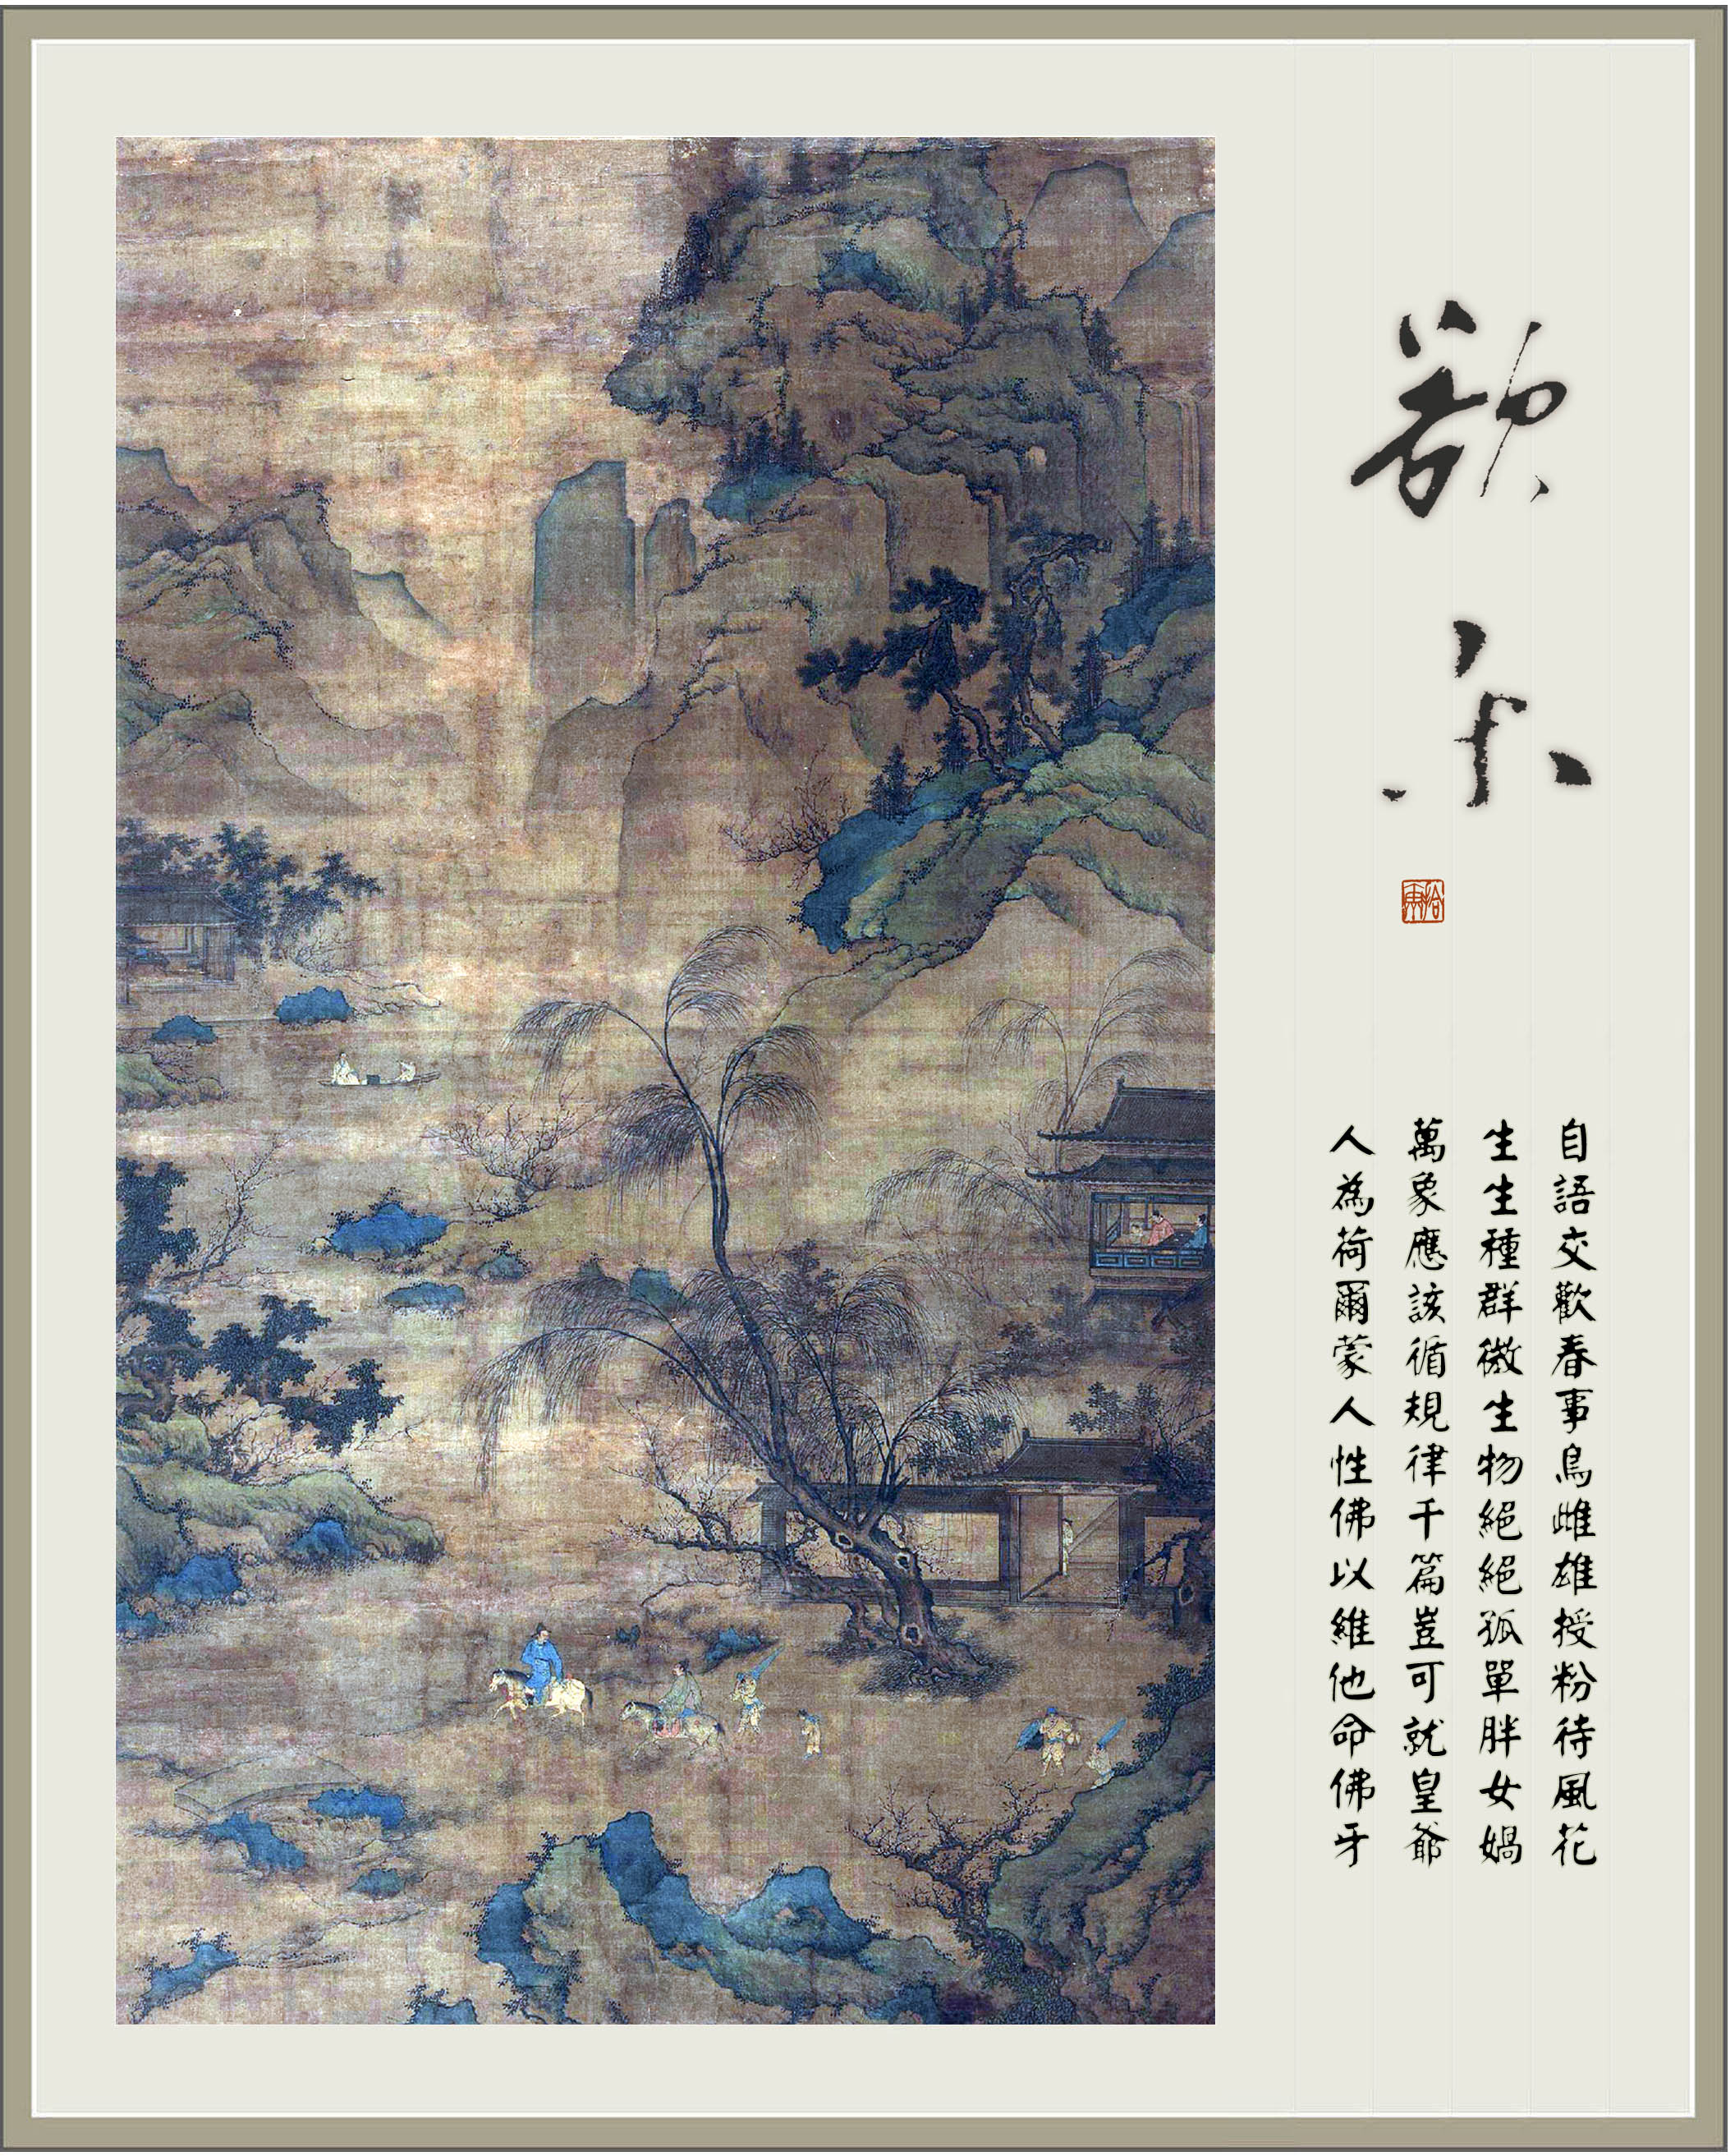 自語交歡春事鳥雌雄授粉待風花
生生種群微生物絕絕孤單胖女媧
萬象應該循規律千篇豈可就皇爺
人為荷爾蒙人性佛以維他命佛牙